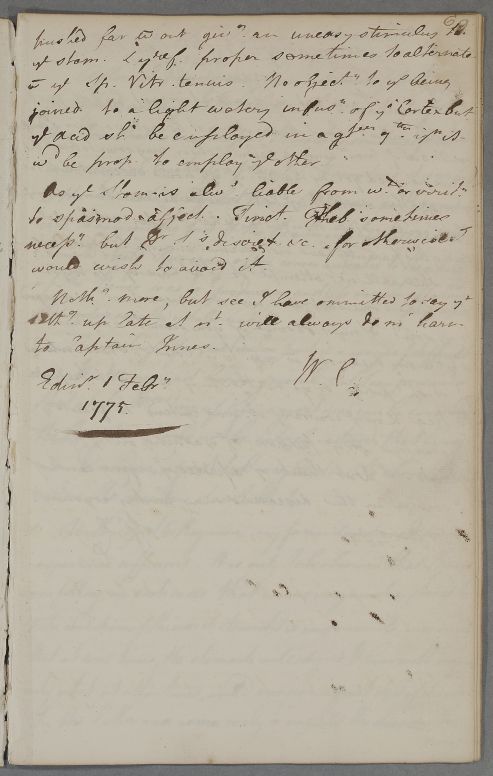 pushed far wt out givg. an uneasy stimulus to
ye stom. & yref. proper sometimes to alternate
wt ye Sp. Vitr. tenuis. No object.n to ys being
joined to a light watery infusn. of ye Cortex but
ye acid shd. be employed in a gter. qty.
wd be prop. to employ ye other
As ye Stom. is alws. liable from wt. or irrit.n
to spasmod. affect.s. Tinct. Theb sometimes
necessy. but Dr. 's discret. &c. for otherwise I
would wish to avoid it.
Nothg. more, but see I have ommitted to say yt
sittg. up late at nt. will always do m. harm
to Captain Innes.
Edinr. 1 Febry W. C
1775.